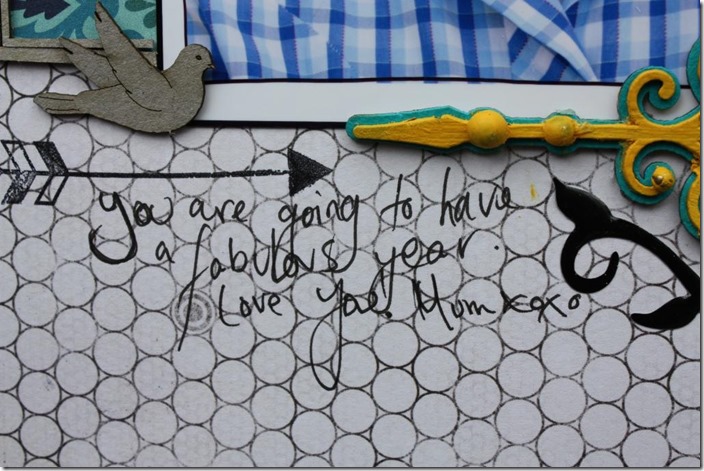 You are going to have
a fabulous year.
Love you. Mum xoxo